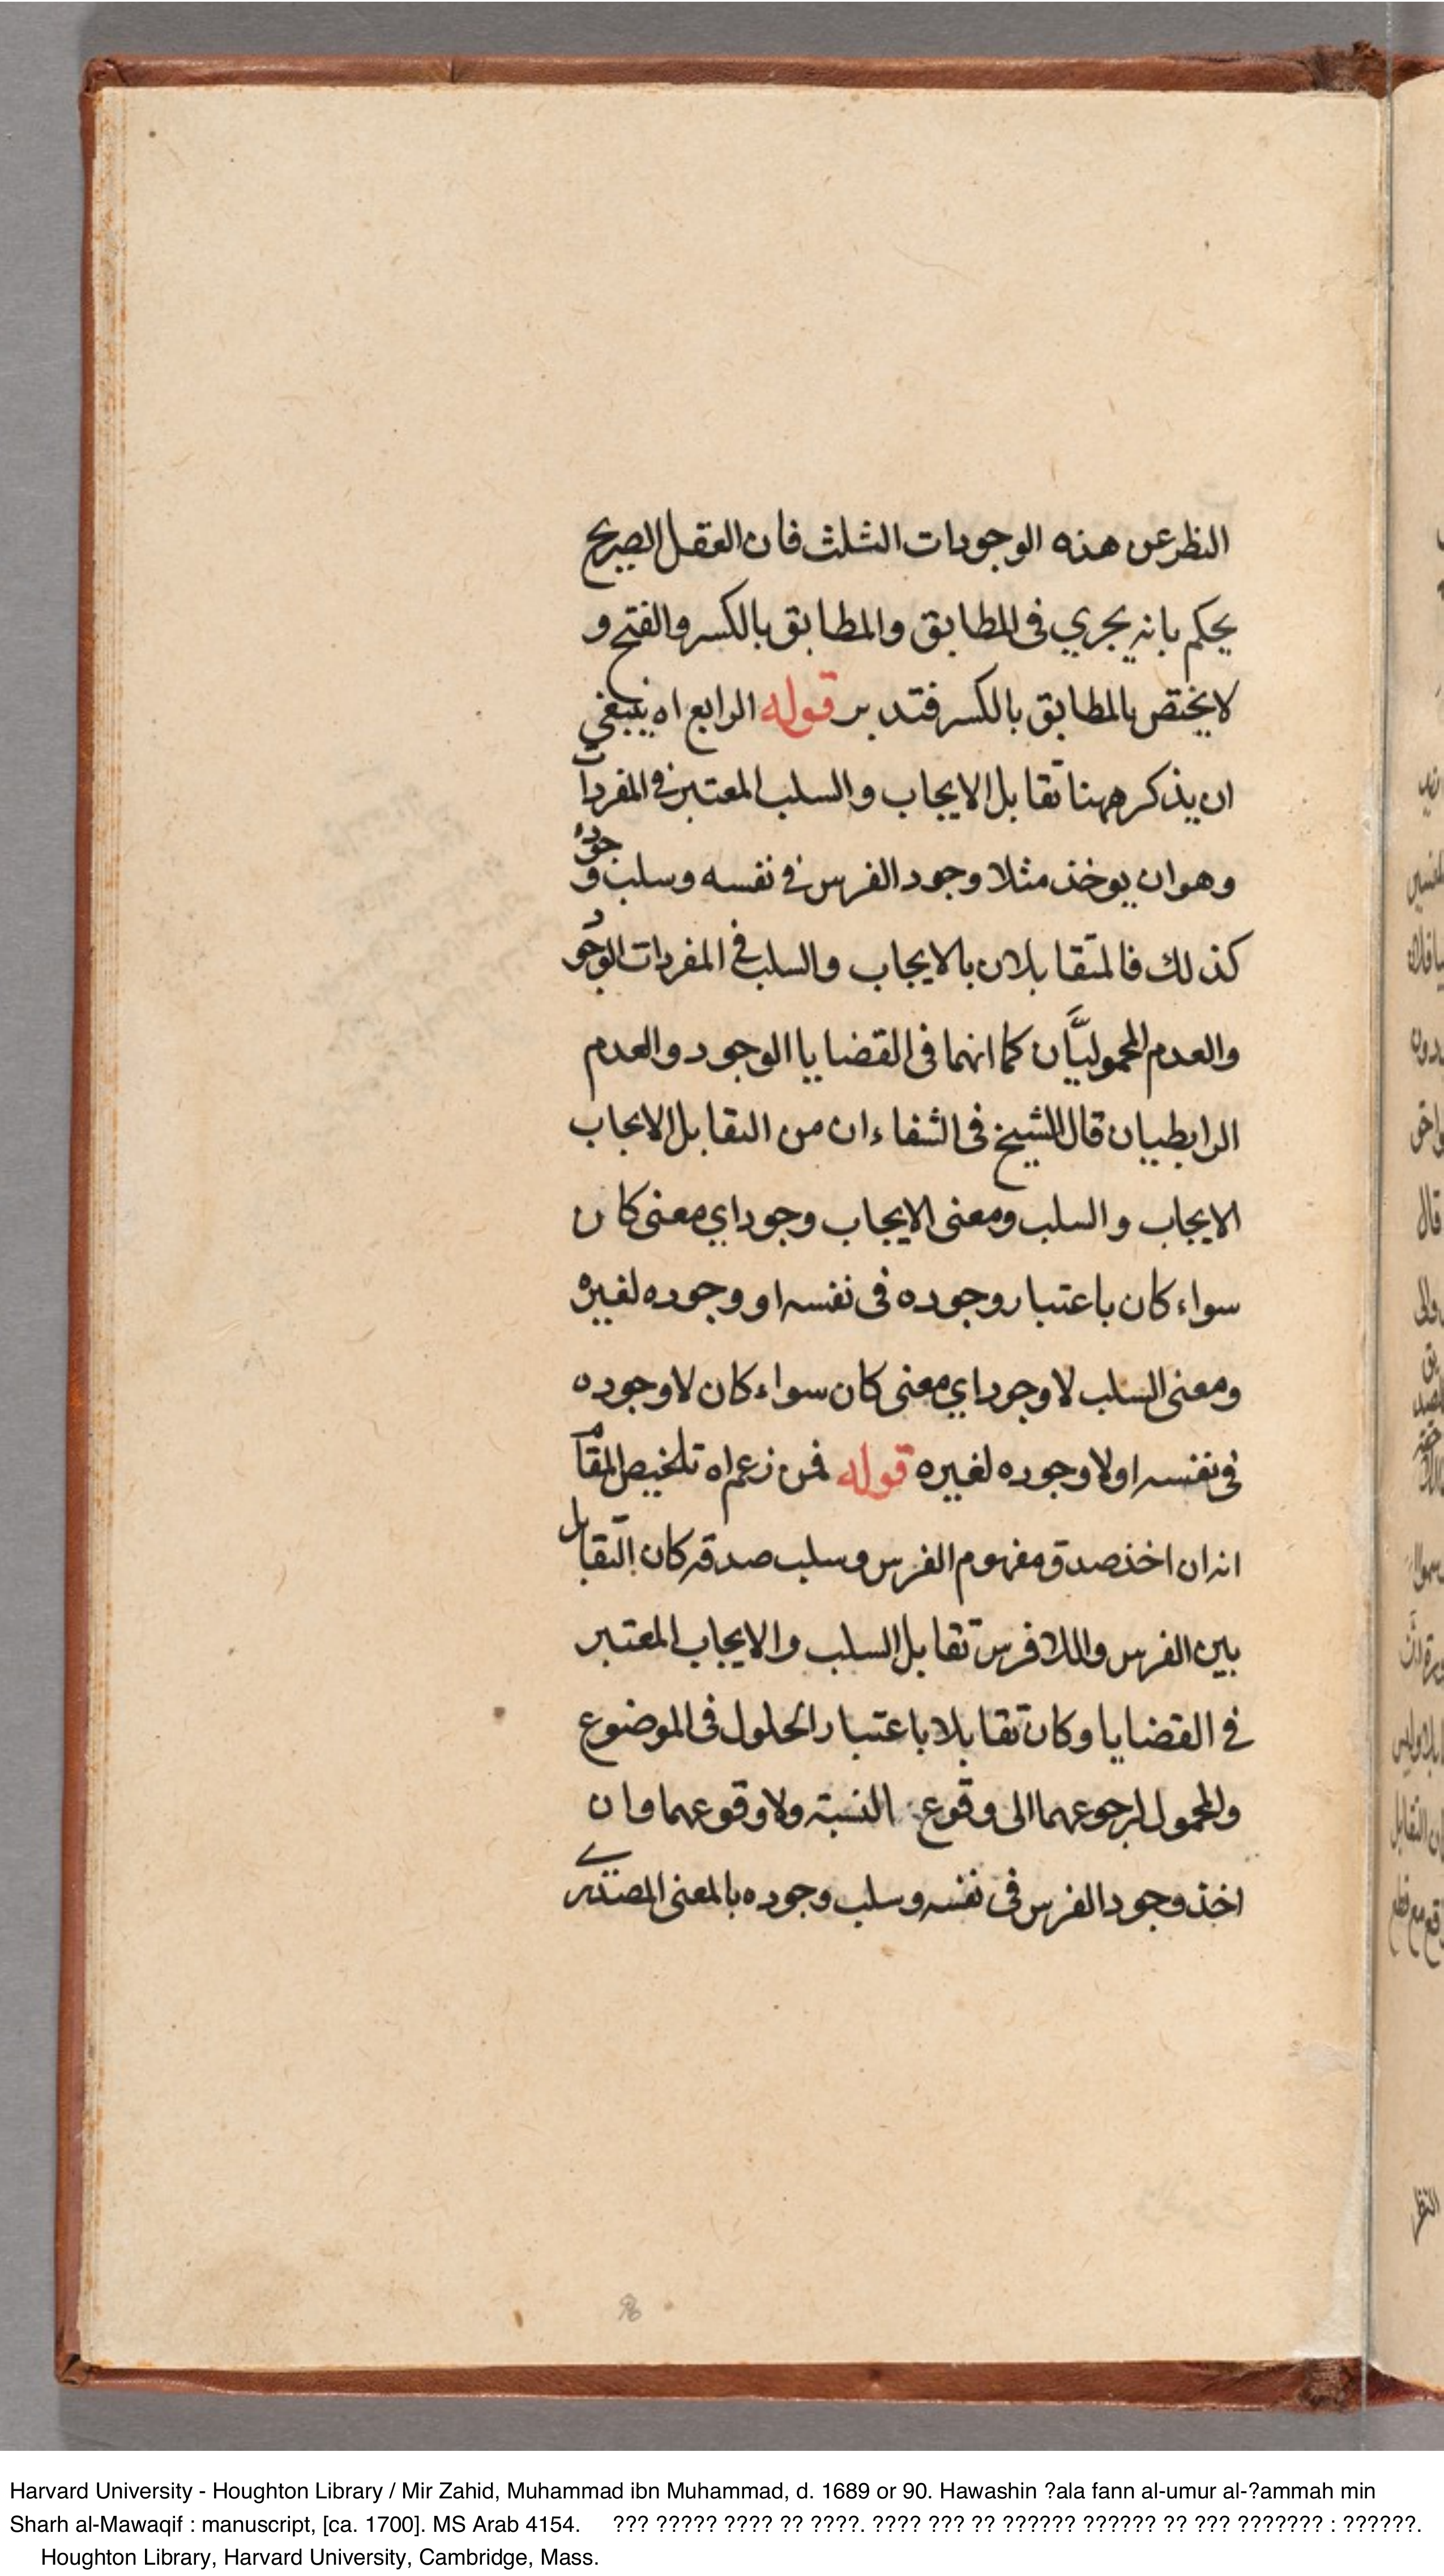 النظر عن هذه الوجودات الثلث فان العقل الصريح
يحكم بانه يجري فى المطابق والمطابق بالكسر والفتح و
لا يختص بالمطابق بالكسر فتدبر قوله الرابع اه ينبغي
ان يذكر ههنا تقابل الايجاب والسلب المعتبر في المفردات
وهو ان يوخذ مثلا وجود الفرس في نفسه وسلب وجوده
كذلك فالمتقابلان بالايجاب والسلب في المفردات الوجود
والعدم المحموليَّان كما انهما فى القضايا الوجود والعدم
الرابطيان قال الشيخ فى الشفاء ان من التقابل الايجاب
الايجاب والسلب ومعنى الايجاب وجود اي معنى كان
سواء كان باعتبار وجوده فى نفسه او وجوده لغيره
ومعنى السلب لا وجود اي معنى كان سواء كان لا وجوده
فى نفسه او لا وجوده لغيره قوله فمن زعم اه تلخيص المقام
انه ان اخذ صدق مفهوم الفرس وسلب صدقه كان التقابل
بين الفرس واللافرس تقابل السلب والايجاب المعتبر
في القضايا وكان تقابلا باعتبار الحلول فى الموضوع
والمحمول لرجوعهما الى وقوع النسبة ولا وقوعهما وان
اخذ وجود الفرس فى نفسه وسلب وجوده بالمعنى المصدري
Harvard University - Houghton Library / Mir Zahid, Muhammad ibn Muhammad, d. 1689 or 90. Hawashin ?ala fann al-umur al-?ammah min
Sharh al-Mawaqif : manuscript, [ca. 1700]. MS Arab 4154. ??? ????? ???? ?? ????. ???? ??? ?? ?????? ?????? ?? ??? ??????? : ??????.
Houghton Library, Harvard University, Cambridge, Mass.